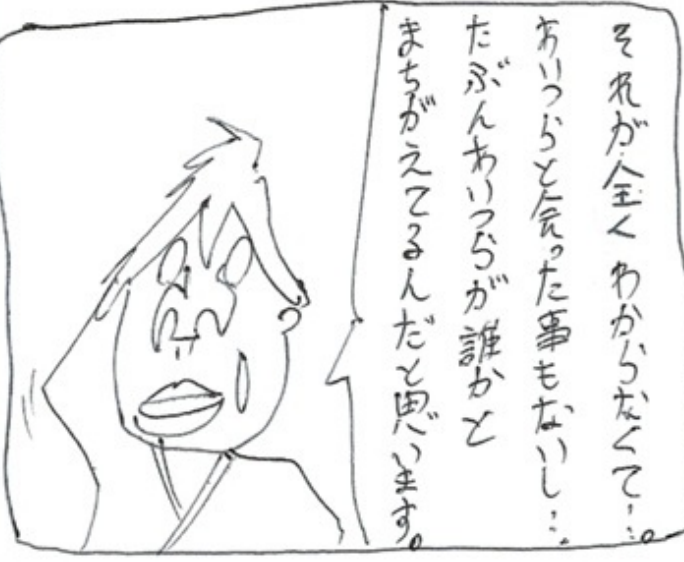 それが全くわからなくて…。
あいつらと会った事もないし…。
たぶんあいつらが誰かと
まちがえてるんだと思います。